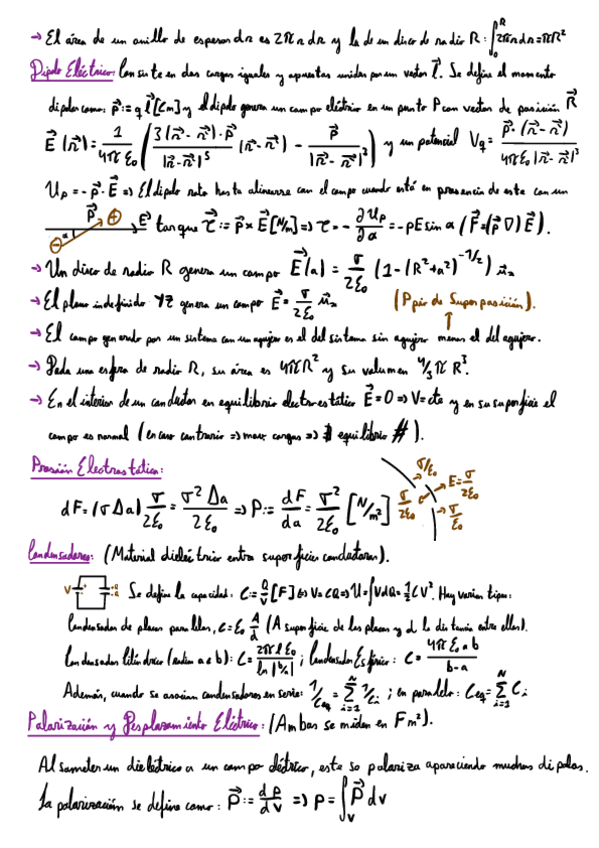 → El área de un anillo de espesor dr es 2πr dr y la de un disco de radio R: ∫₀ᴿ 2πr dr = πR²
Dipolo Eléctrico: Consiste en dos cargas iguales y opuestas unidas por un vector l⃗. Se define el momento
dipolar como: p⃗ := q l⃗ [Cm] y el dipolo genera un campo eléctrico en un punto P con vector de posición R⃗
E⃗(r⃗) = 1/4πε₀ (3(r⃗-r⃗')·p⃗/|r⃗-r⃗'|⁵ (r⃗-r⃗') - p⃗/|r⃗-r⃗'|³) y un potencial Vq = p⃗·(r⃗-r⃗')/4πε₀|r⃗-r⃗'|³
Up = -p⃗·E⃗ ⇒ El dipolo rota hasta alinearse con el campo cuando está en presencia de este con un
p⃗ + - α E⃗ torque τ⃗ := p⃗×E⃗ [N/m] ⇒ τ = -∂Up/∂α = -pE sin α (F⃗=(p⃗∇)E⃗).
→ Un disco de radio R genera un campo E⃗(a) = σ/2ε₀ (1-(R²+a²)^-1/2) u⃗x
→ El plano indefinido YZ genera un campo E⃗ = σ/2ε₀ u⃗x (Ppio de Superposición).
→ El campo generado por un sistema con un agujero es el del sistema sin agujero menos el del agujero.
→ Dada una esfera de radio R, su área es 4πR² y su volumen 4/3 π R³.
→ En el interior de un conductor en equilibrio electrostático E⃗=0 ⇒ V=cte y en su superficie el
campo es normal (en caso contrario ⇒ mov. cargas ⇒ ∄ equilibrio #).
Presión Electrostática:
dF = (σΔa) σ/2ε₀ = σ²Δa/2ε₀ ⇒ P := dF/da = σ²/2ε₀ [N/m²] σ/2ε₀ σ/ε₀ E=σ/2ε₀ σ/ε₀
Condensadores: (Material dieléctrico entre superficies conductoras).
V Se define la capacidad: C := Q/V [F] ⇔ V=CQ ⇒ U=∫VdQ=½CV². Hay varios tipos:
Condensador de placas paralelas, C=ε₀ A/d (A superficie de las placas y d la distancia entre ellas).
Condensador Cilíndrico (radios a e b): C = 2πlε₀/ln|b/a| ; Condensador Esférico: C = 4πε₀ab/b-a
Además, cuando se asocian condensadores en serie: 1/Ceq = Σᵢ₌₁ᴺ 1/Cᵢ ; en paralelo: Ceq = Σᵢ₌₁ᴺ Cᵢ
Polarización y Desplazamiento Eléctrico: (Ambas se miden en Fm²).
Al someter un dieléctrico a un campo eléctrico, este se polariza apareciendo muchos dipolos.
La polarización se define como: P⃗ := dp/dv ⇒ p = ∫ᵥ P⃗ dv